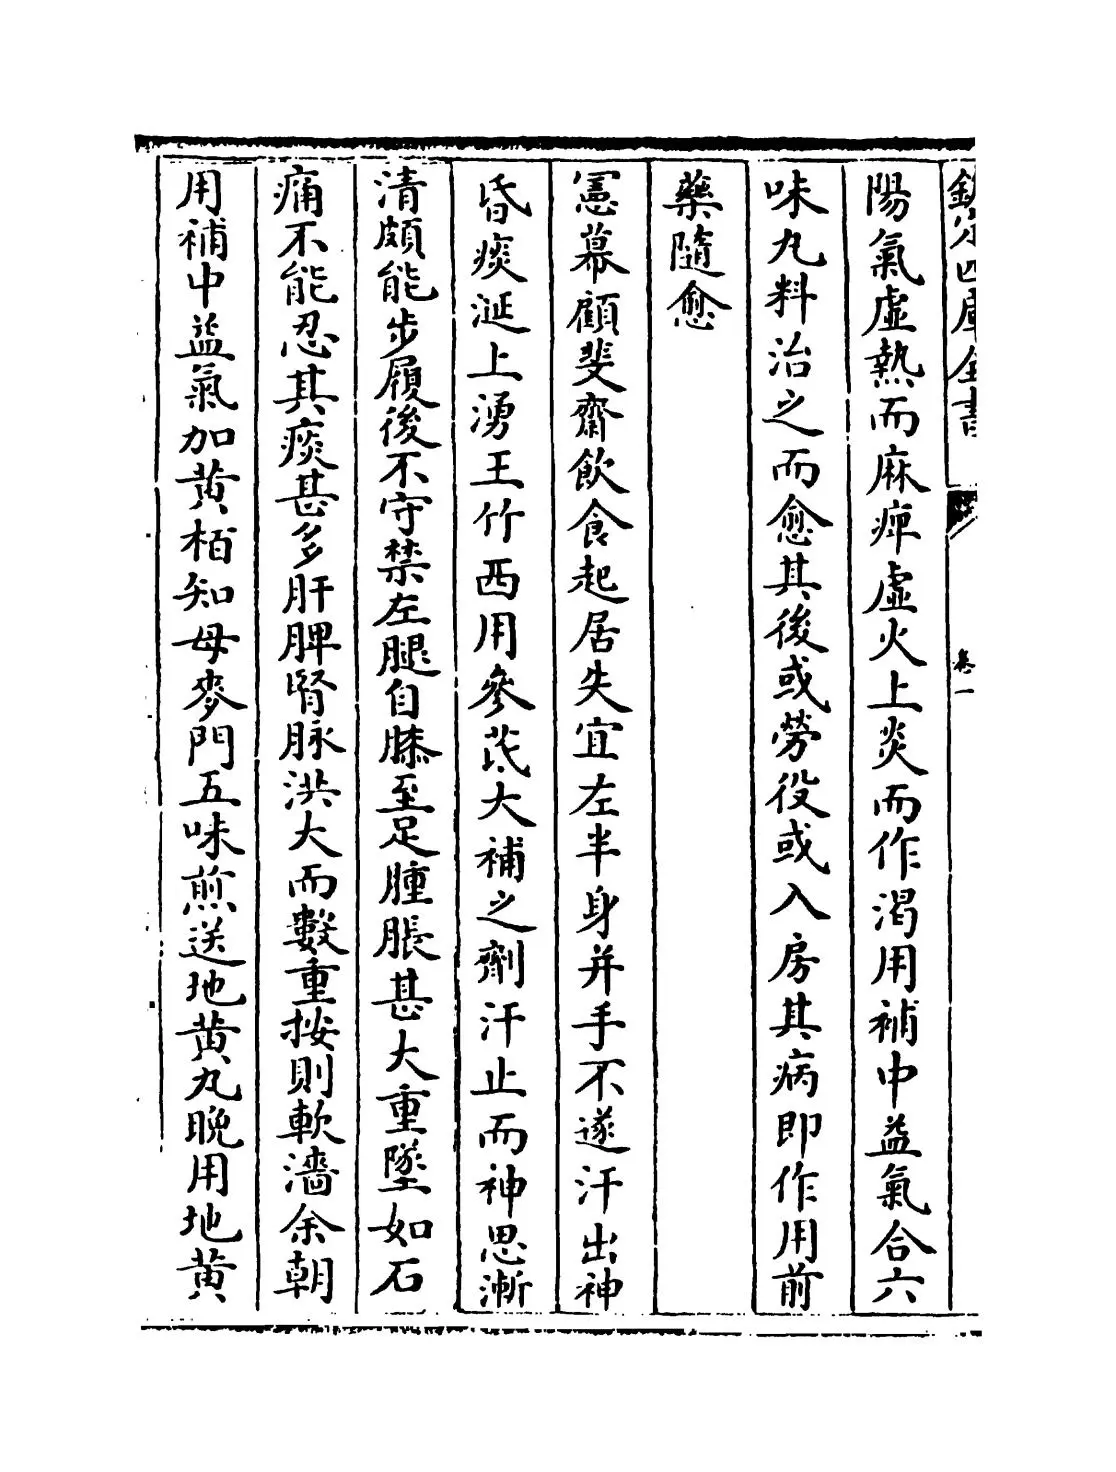 欽定四庫全書
卷一
陽氣虛熱而麻痺虛火上炎而作渴用補中益氣合六
味丸料治之而愈其後或勞役或入房其病即作用前
藥隨愈
憲幕顧斐齋飲食起居失宜左半身并手不遂汗出神
昏痰涎上湧王竹西用參芪大補之劑汗止而神思漸
清頗能步履後不守禁左腿自膝至足腫脹甚大重墜如石
痛不能忍其痰甚多肝脾腎脉洪大而數重按則軟濇余朝
用補中益氣加黄栢知母麥門五味煎送地黄丸晚用地黄